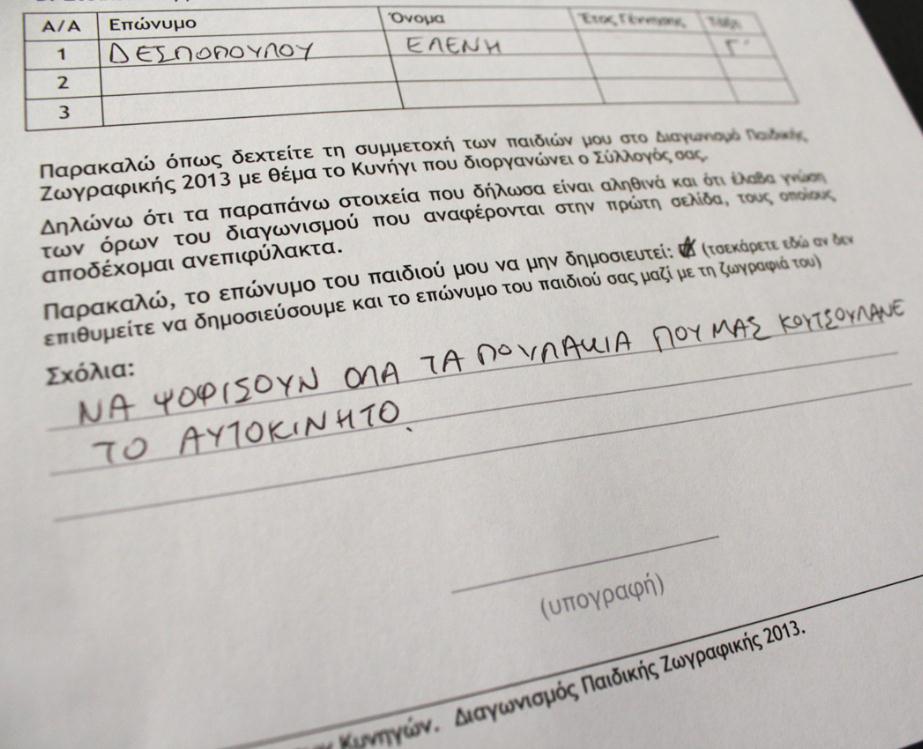 Α/Α Επώνυμο Όνομα Έτος Γέννησης Τάξη
1 ΔΕΣΠΟΠΟΥΛΟΥ ΕΛΕΝΗ Γ'
2
3
Παρακαλώ όπως δεχτείτε τη συμμετοχή των παιδιών μου στο Διαγωνισμό Παιδικής
Ζωγραφικής 2013 με θέμα το Κυνήγι που διοργανώνει ο Σύλλογός σας.
Δηλώνω ότι τα παραπάνω στοιχεία που δήλωσα είναι αληθινά και ότι έλαβα γνώση
των όρων του διαγωνισμού που αναφέρονται στην πρώτη σελίδα, τους οποίους
αποδέχομαι ανεπιφύλακτα.
Παρακαλώ, το επώνυμο του παιδιού μου να μην δημοσιευτεί: (τσεκάρετε εδώ αν δεν
επιθυμείτε να δημοσιεύσουμε και το επώνυμο του παιδιού σας μαζί με τη ζωγραφιά του)
Σχόλια:
ΝΑ ΨΟΦΙΣΟΥΝ ΟΛΑ ΤΑ ΠΟΥΛΑΚΙΑ ΠΟΥ ΜΑΣ ΚΟΥΤΣΟΥΛΑΝΕ
ΤΟ ΑΥΤΟΚΙΝΗΤΟ.
(υπογραφή)
Κυνηγών. Διαγωνισμός Παιδικής Ζωγραφικής 2013.